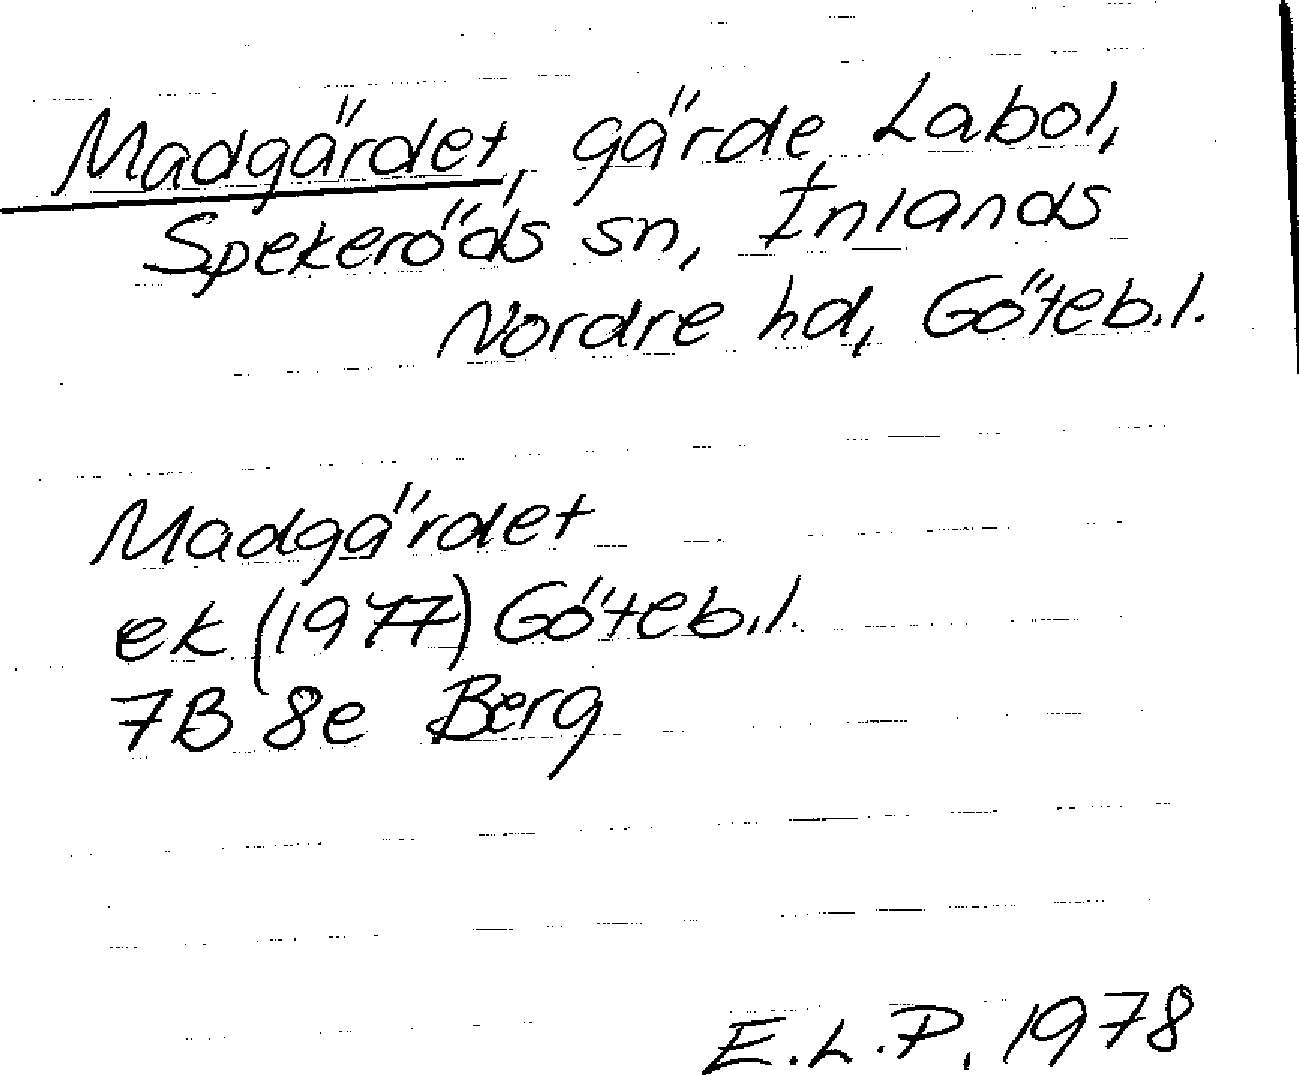 Madgärdet, gärde, Labol,
Spekeröds sn, Inlands
Nordre hd, Göteb.l.
Madgärdet
ek (1977) Göteb.l.
7B 8e Berg
E.L.P. 1978